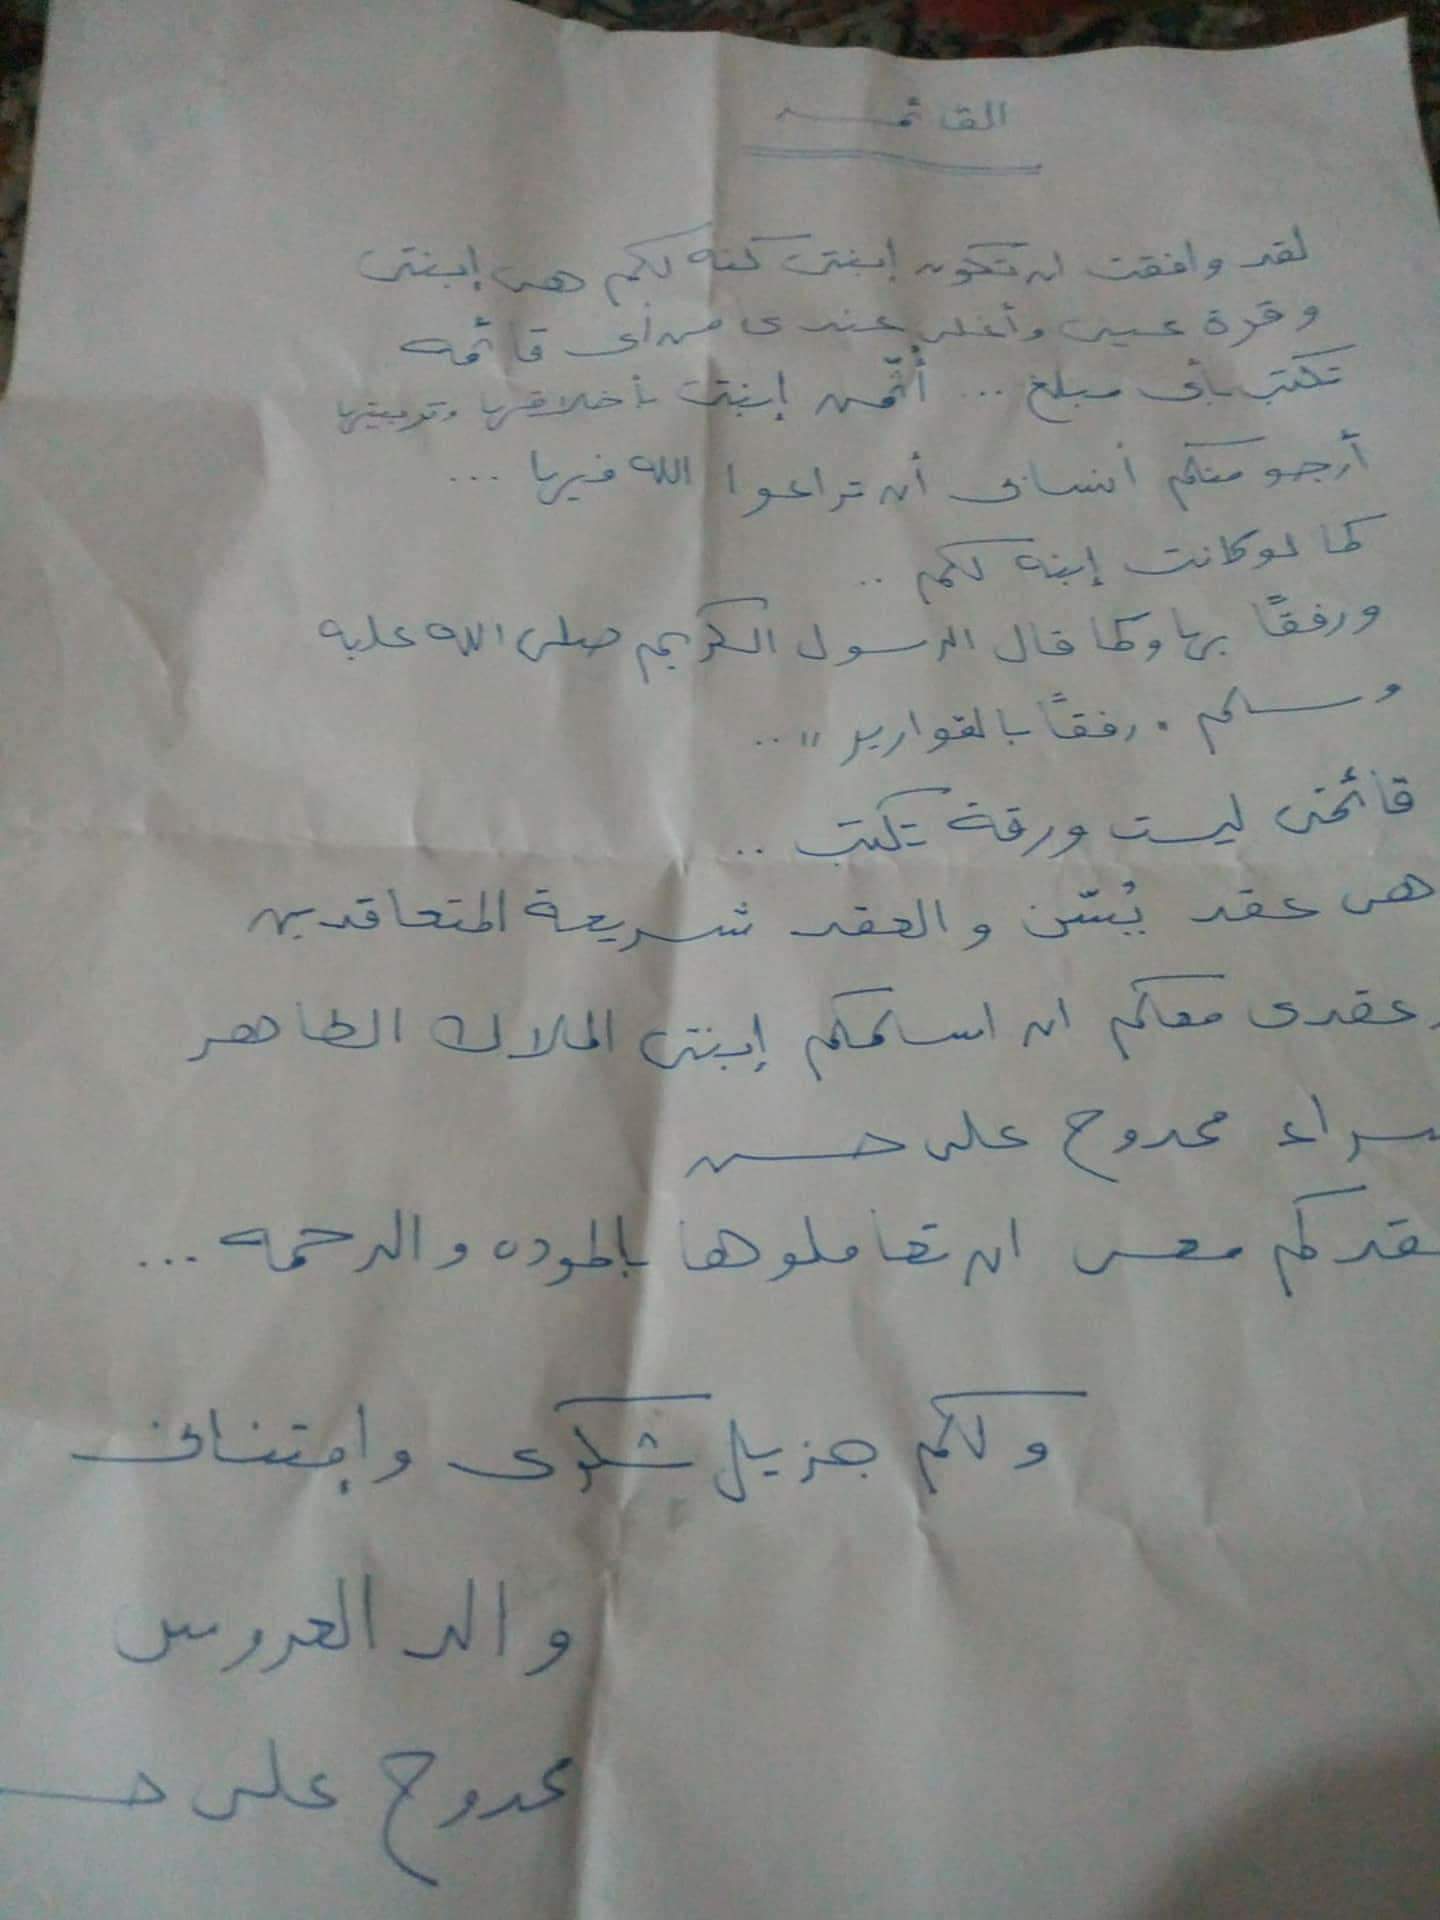 القائمه
لقد وافقت ان تكون إبنتى كنه لكم هى إبنتى
وقرة عينى وأغلى عندى من أى قائمه
تكتب بأى مبلغ ... أُثمّن إبنتى بأخلاقها وتربيتها
أرجو منكم أنسابى أن تراعوا الله فيها ...
كما لو كانت إبنه لكم ..
ورفقاً بها وكما قال الرسول الكريم صلى الله عليه
وسلم " رفقاً بالقوارير " ..
قائمتى ليست ورقة تكتب ..
هى عقد يُسّن والعقد شريعة المتعاقدين
وعقدى معكم ان اسلمكم إبنتى الملاك الطاهر
سراء ممدوح على حسن
عقدكم معى ان تعاملوها بالموده والرحمه ...
ولكم جزيل شكرى وإمتنانى
والد العروس
ممدوح على حسـ